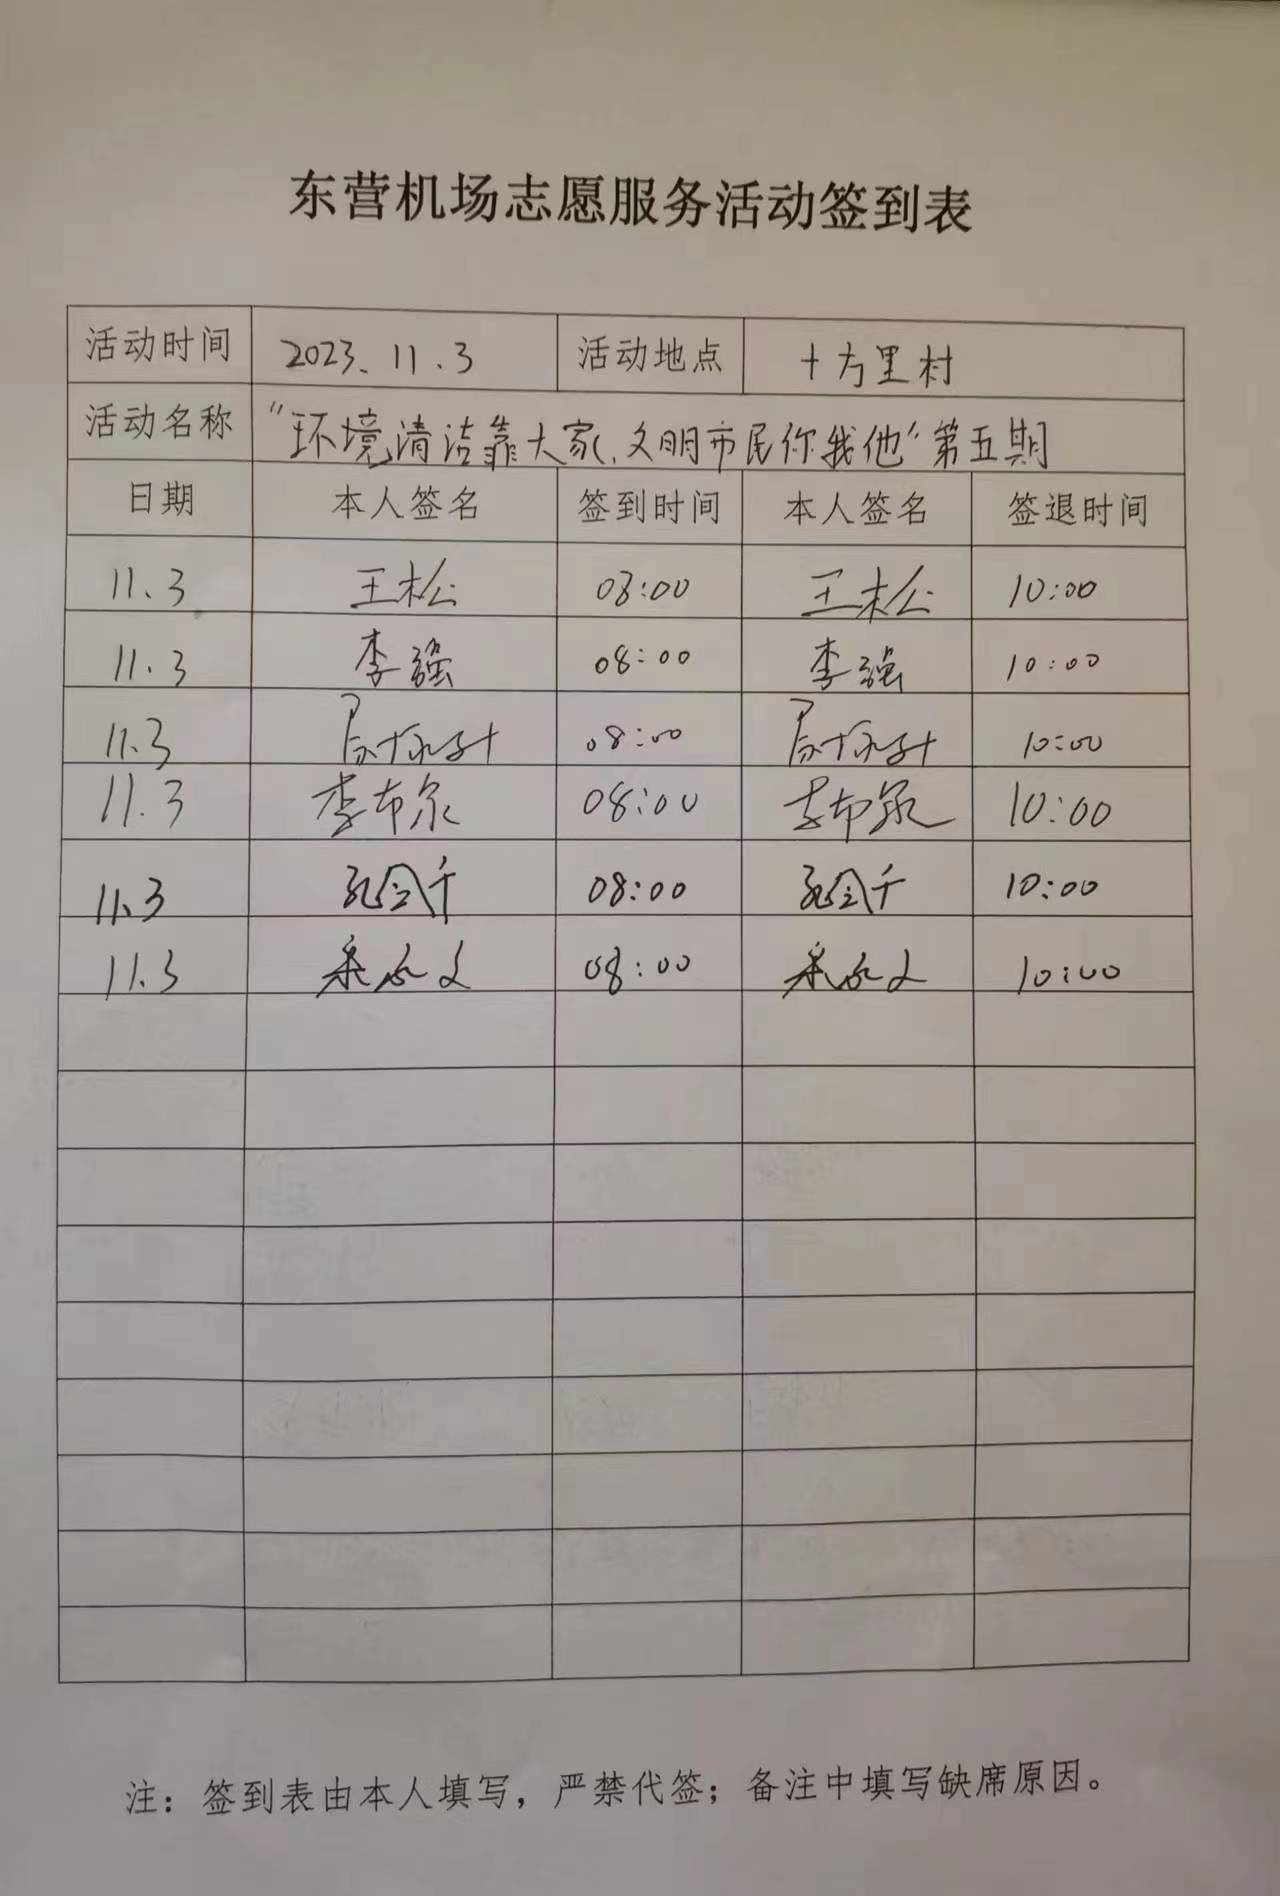 东营机场志愿服务活动签到表
活动时间 2023.11.3 活动地点 十方里村
活动名称 “环境清洁靠大家,文明市民你我他”第五期
日期 本人签名 签到时间 本人签名 签退时间
11.3 王松 08:00 王松 10:00
11.3 李强 08:00 李强 10:00
11.3 08:00 10:00
11.3 李布尔 08:00 10:00
11.3 08:00 10:00
11.3 08:00 10:00
注：签到表由本人填写，严禁代签；备注中填写缺席原因。